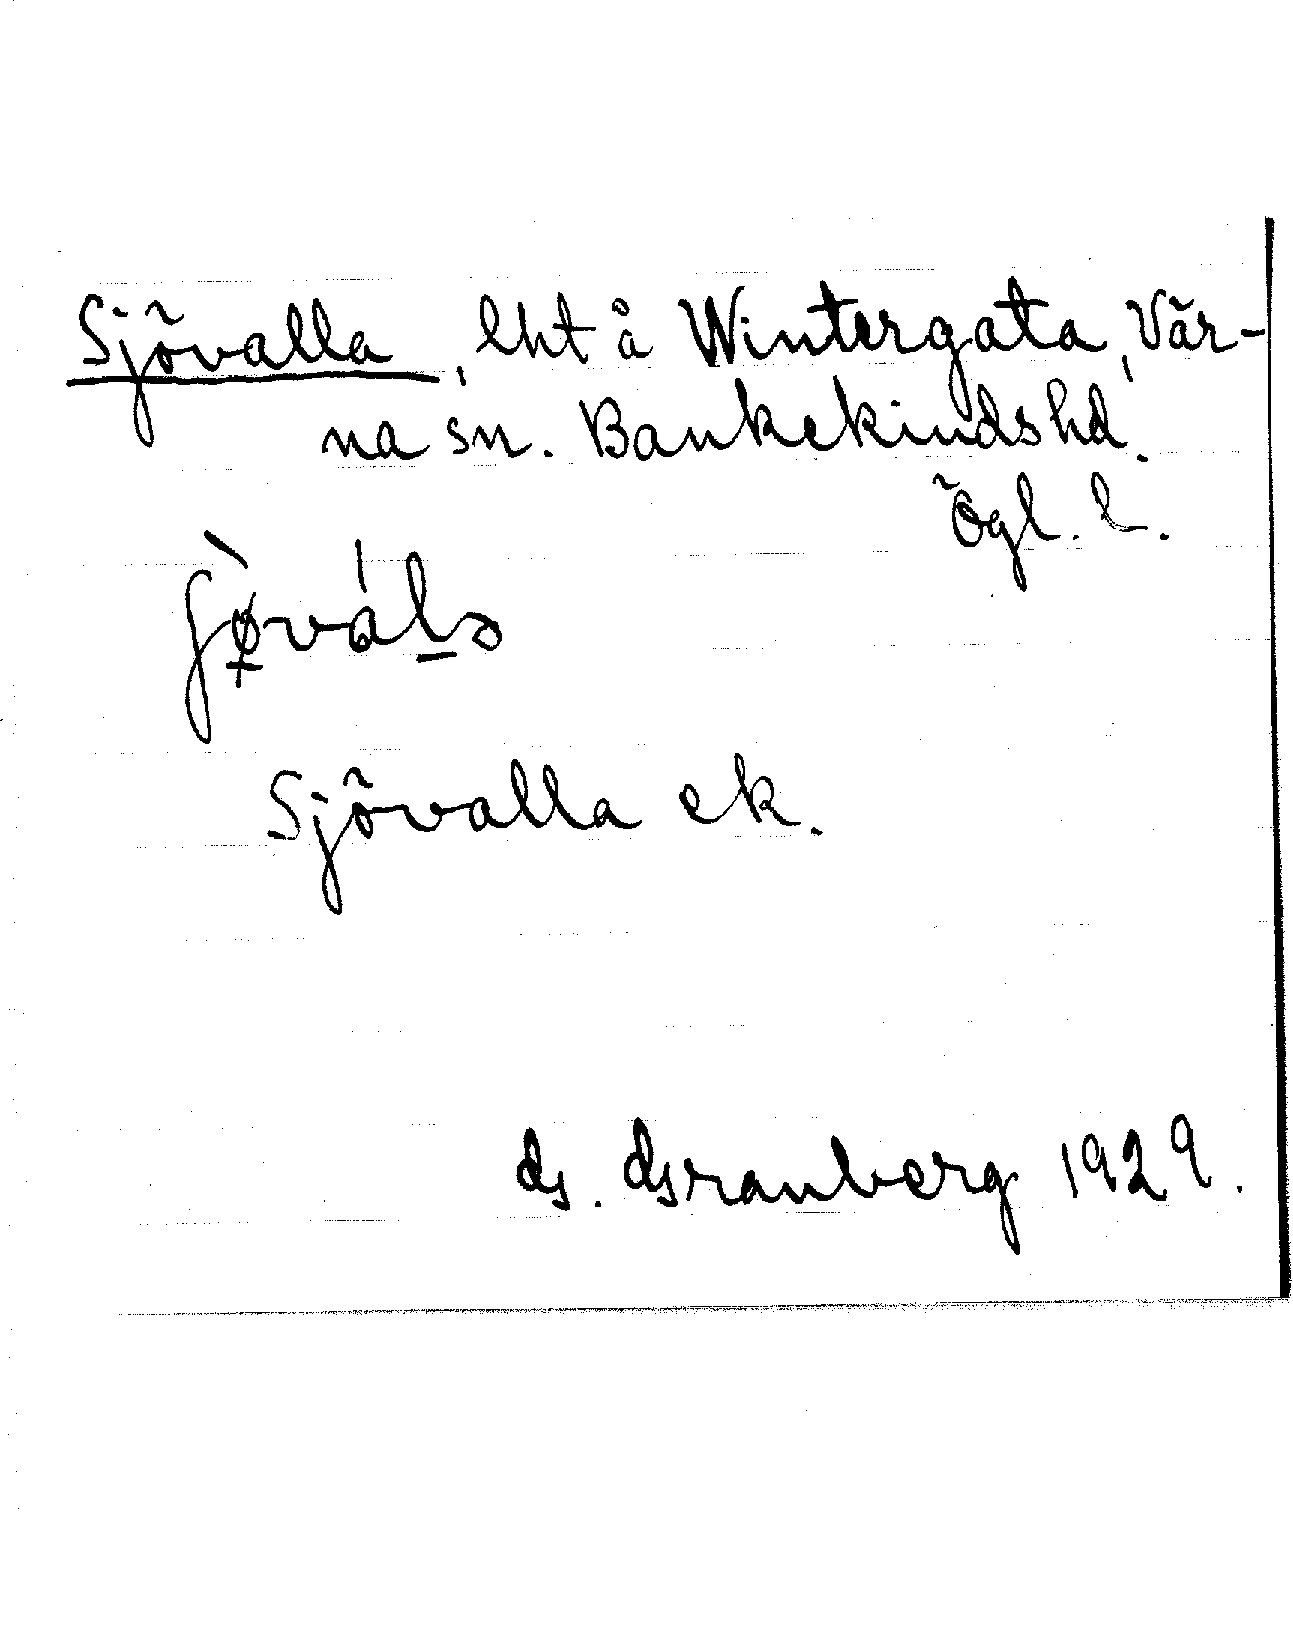 Sjövalla, lht å Wintergata, Vär-
na sn. Bankekinds hd.
Ögl. l.
Sjövalla ek.
G. Granberg 1929.